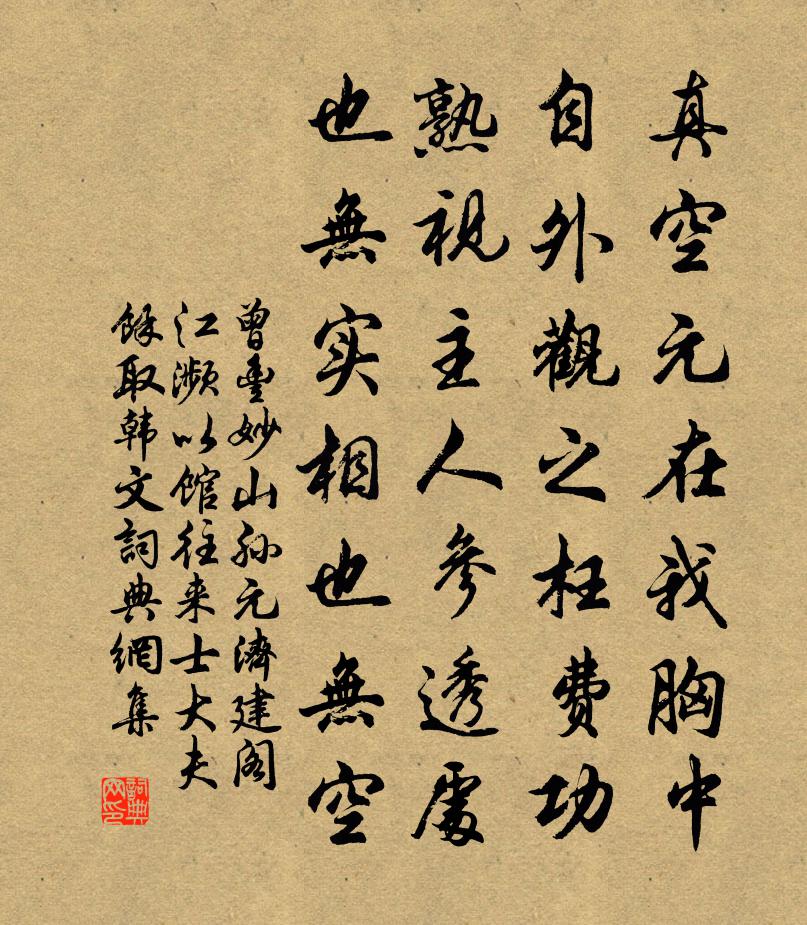 真空元在我胸中
自外觀之枉費功
熟視主人參透處
也無实相也無空
曾豊妙山孙元濟建阁
江瀕以館往来士大夫
餘取韩文詞典網集
詞典网印